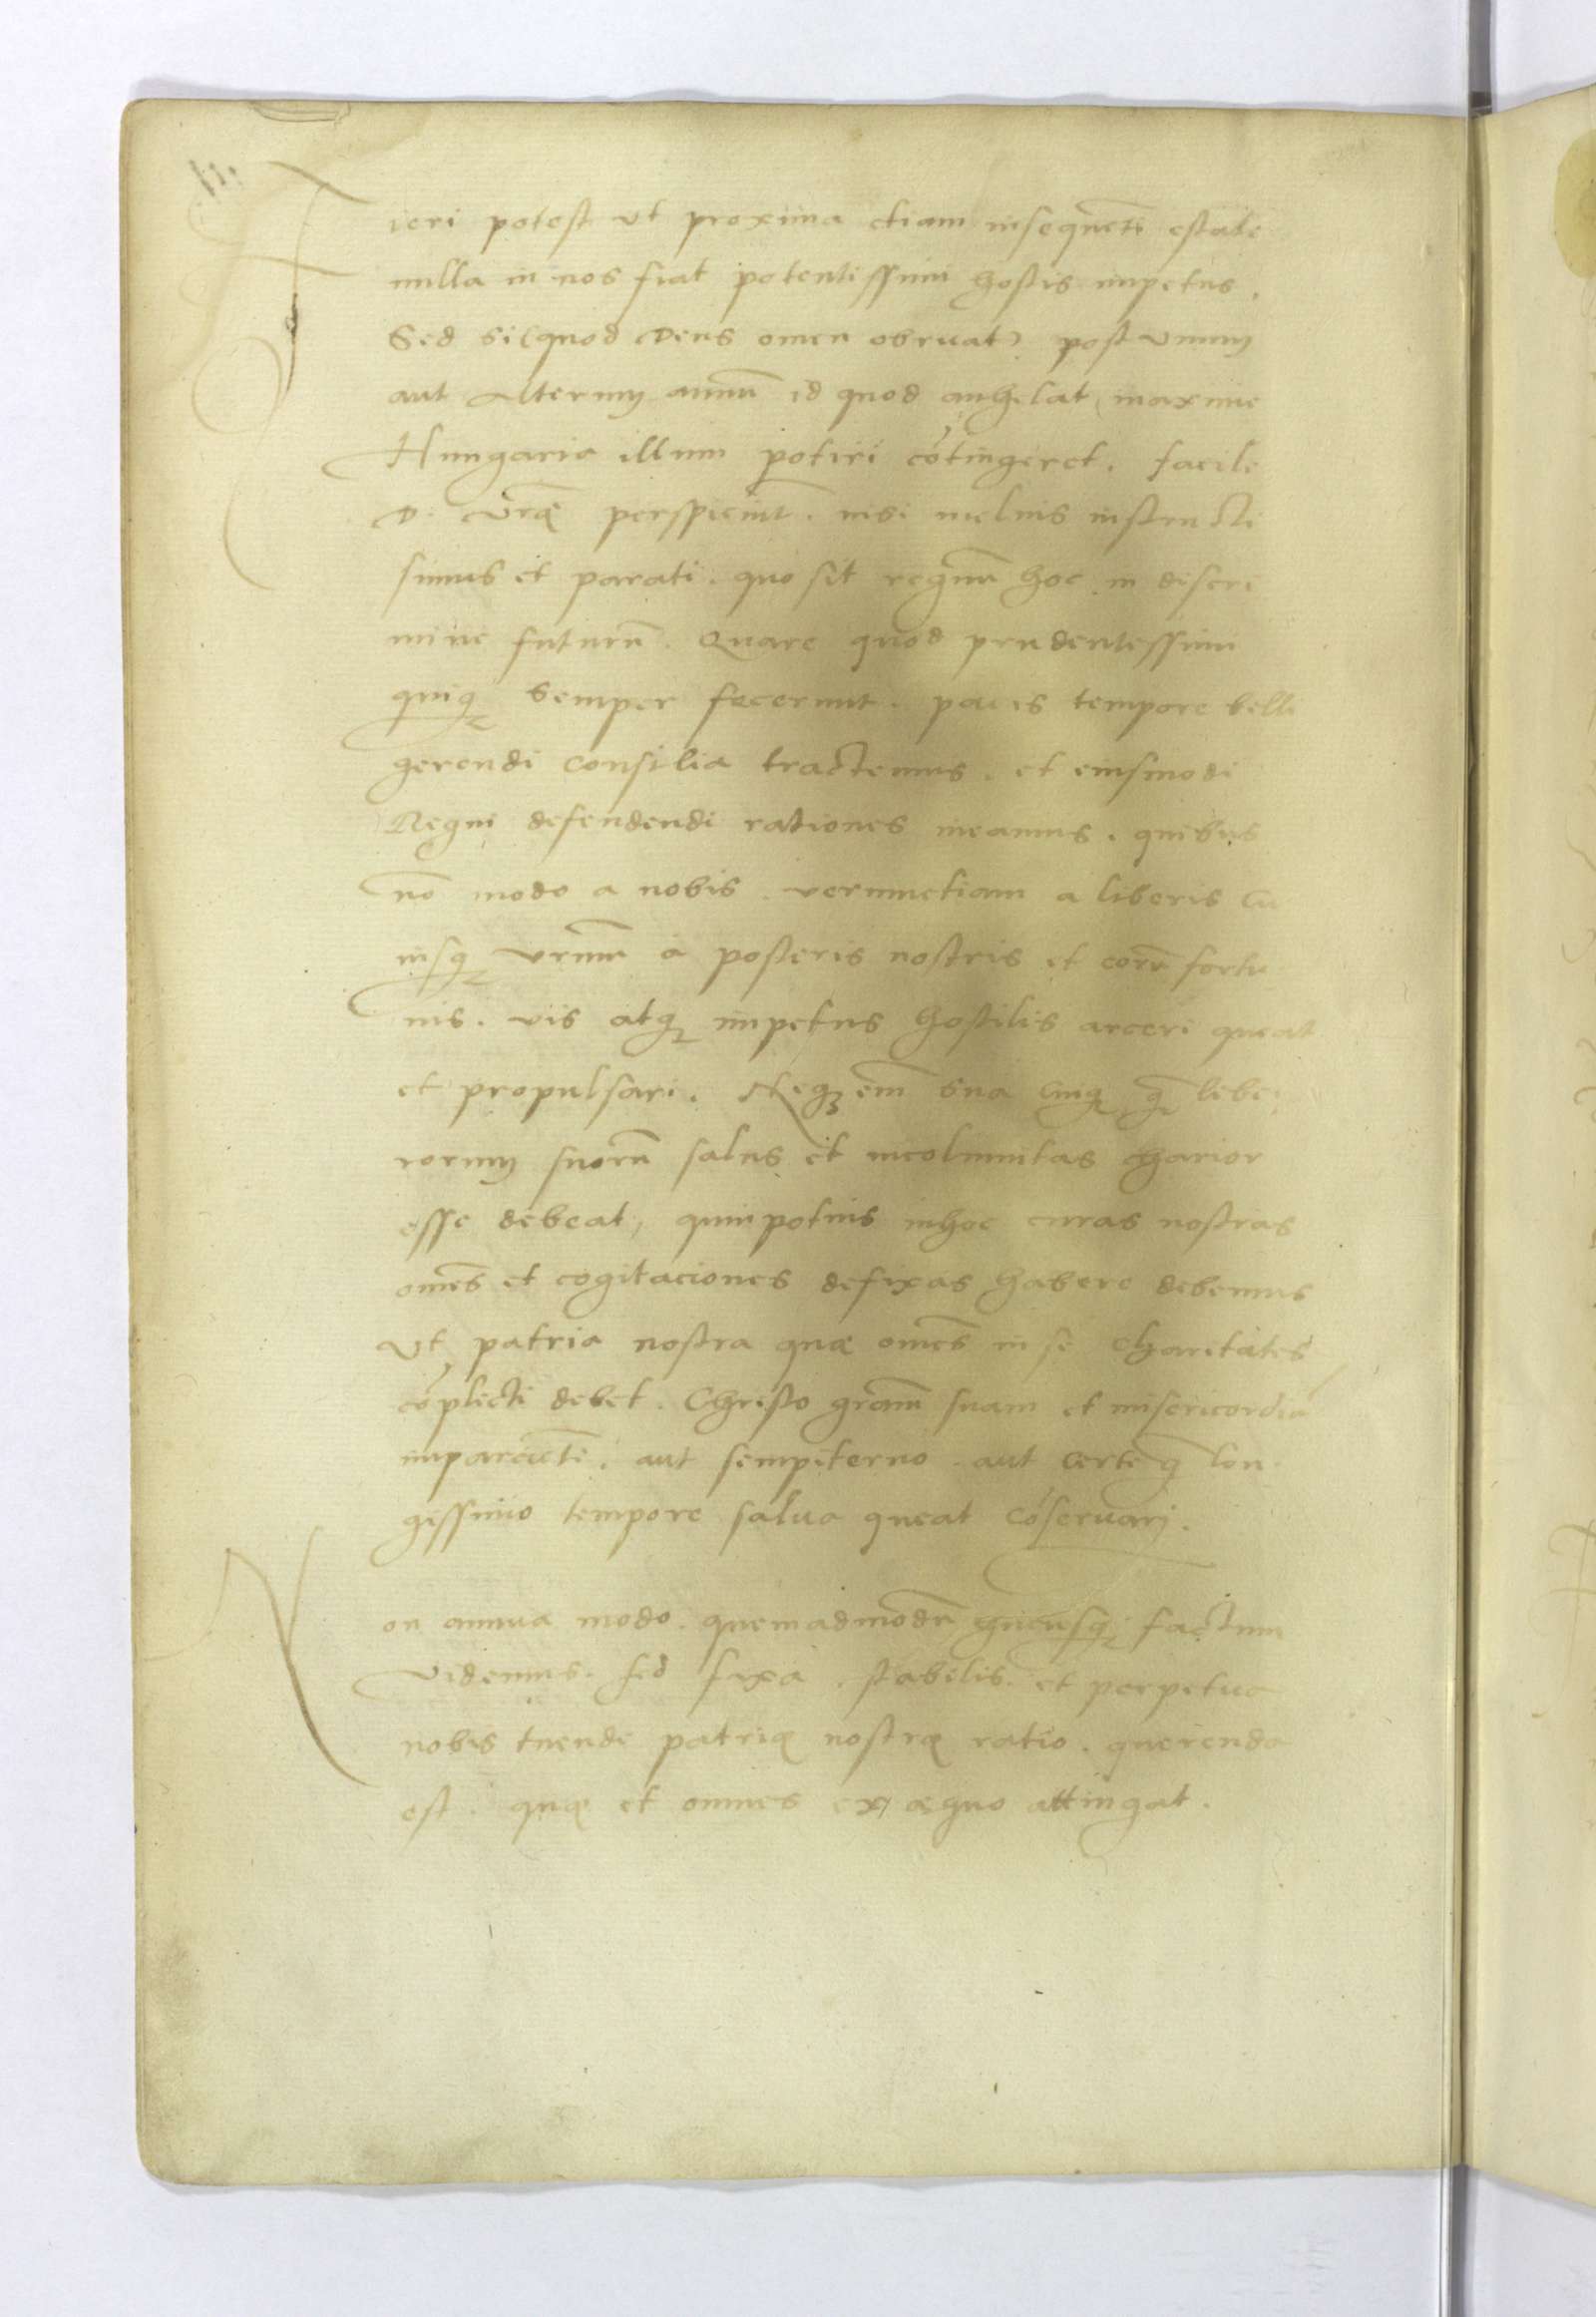 Fieri potest vt proxima etiam insequẽti estate
nulla in nos fiat potentissimi hostis impetus.
Sed si (quod Deus omen obruat) post vnum
aut alterum annũ id quod anhelat maxime
Hungaria illum potiri cõtingeret. facile
D. vrãe perspiciũt. nisi melius instructi
simus et parati. quo sit regnũ hoc in discri
mine futurũ. Quare quod prudentessimi
quiq; semper fecerunt. pacis tempore belli
gerendi consilia tractemus. et eiusmodi
Regni defendendi rationes ineamus. quibus
nõ modo a nobis. verumetiam a liberis cu
iusq; vrũm a posteris nostris et eorũ fortu
nis. vis atq; impetus hostilis arceri queat
et propulsari. Neq; em̃ sua cuiq; q̃ lebe
rorum suorũ salus et incolumitas charior
esse debeat, quinpotius inhoc curas nostras
omẽs et cogitaciones defixas habere debemus
Vt patria nostra quæ omẽs in se charitates
cõplecti debet. Christo grãm suam et misericordiã
imparciẽte. aut sempiterno. aut certe q̃ lon
gissimo tempore salua queat cõseruarj.
Non annua modo. quemadmodũ hucusq; factum
videmus. sed fixa. stabilis. et perpetua
nobis tuende patrię nostrę ratio. querenda
est. quę et omnes ex æquo attingat.